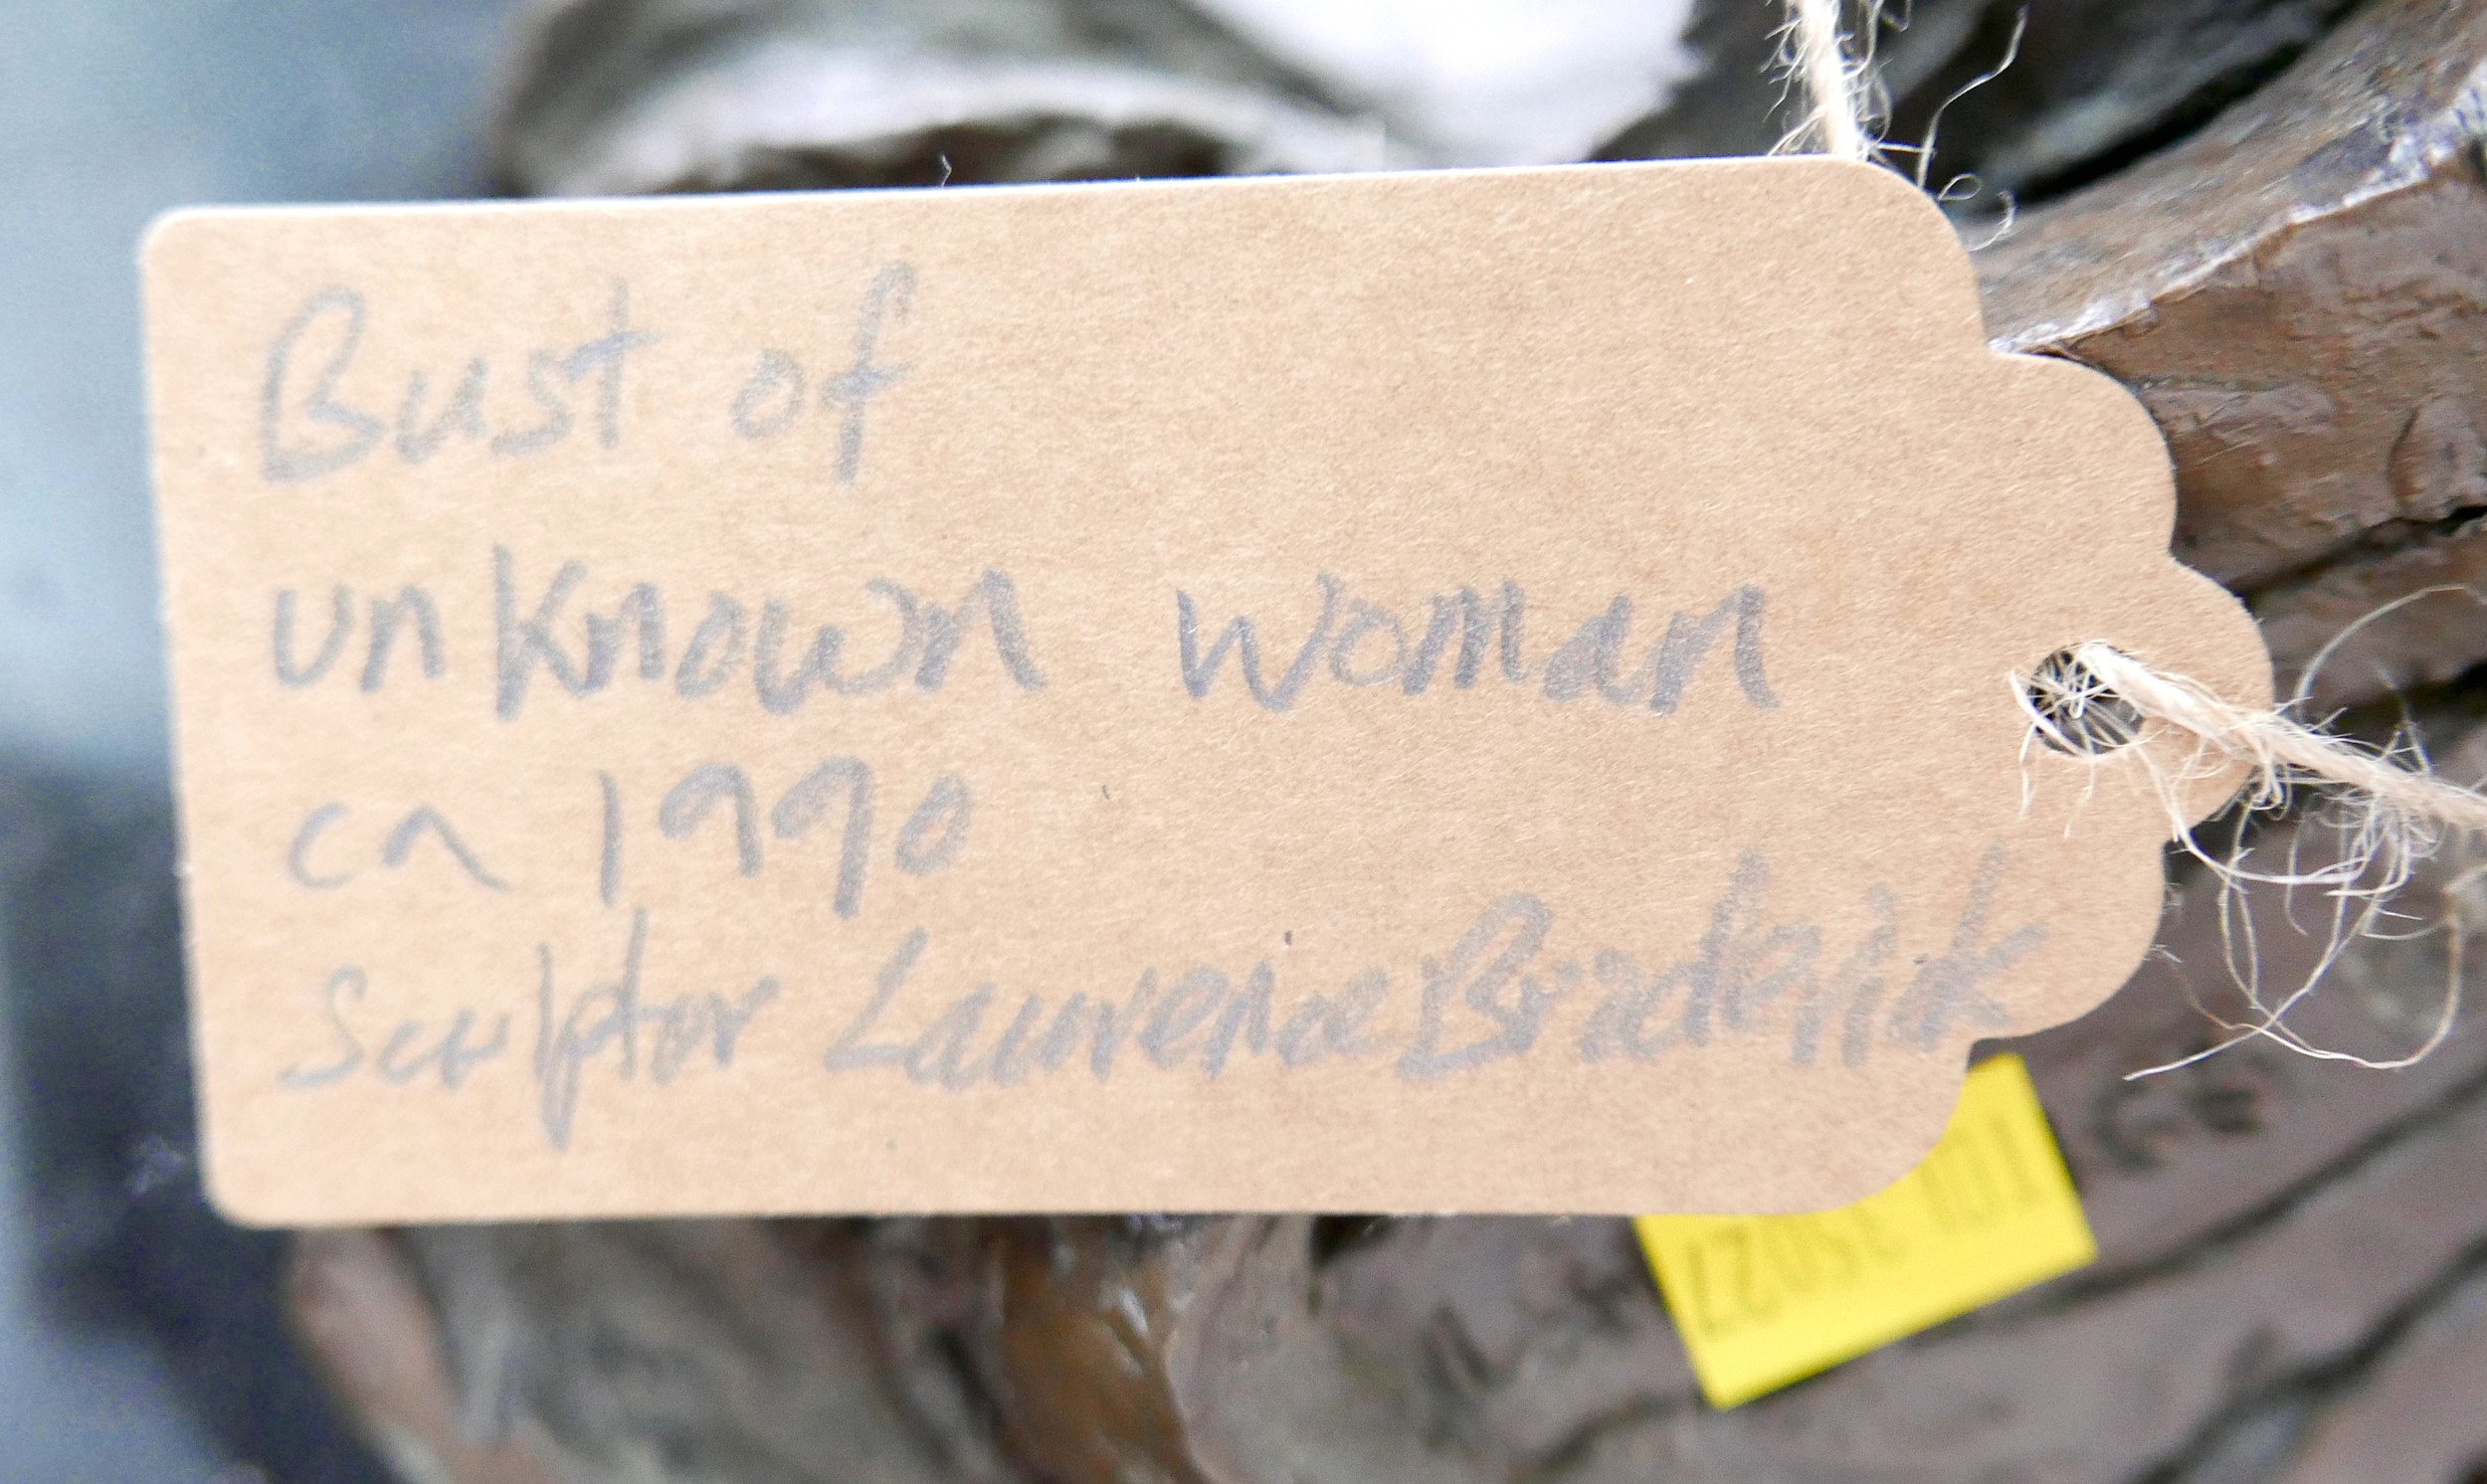 Bust of
unknown woman
ca 1990
Sculptor Laurence Broderick